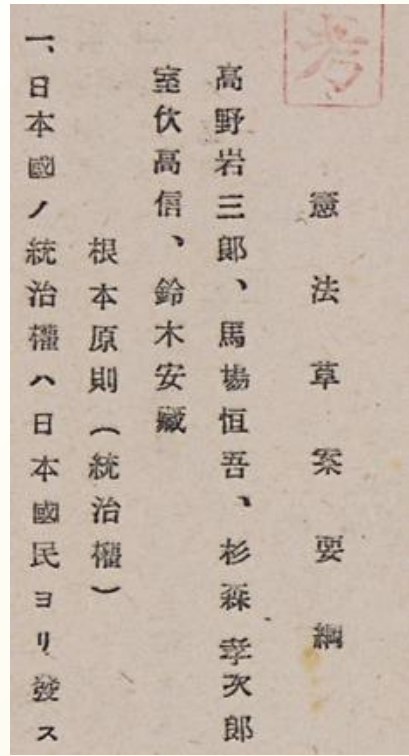 考
憲法草案要綱
高野岩三郎、馬場恒吾、杉森孝次郎
室伏高信、鈴木安藏
根本原則(統治權)
一、日本國ノ統治權ハ日本國民ヨリ發ス